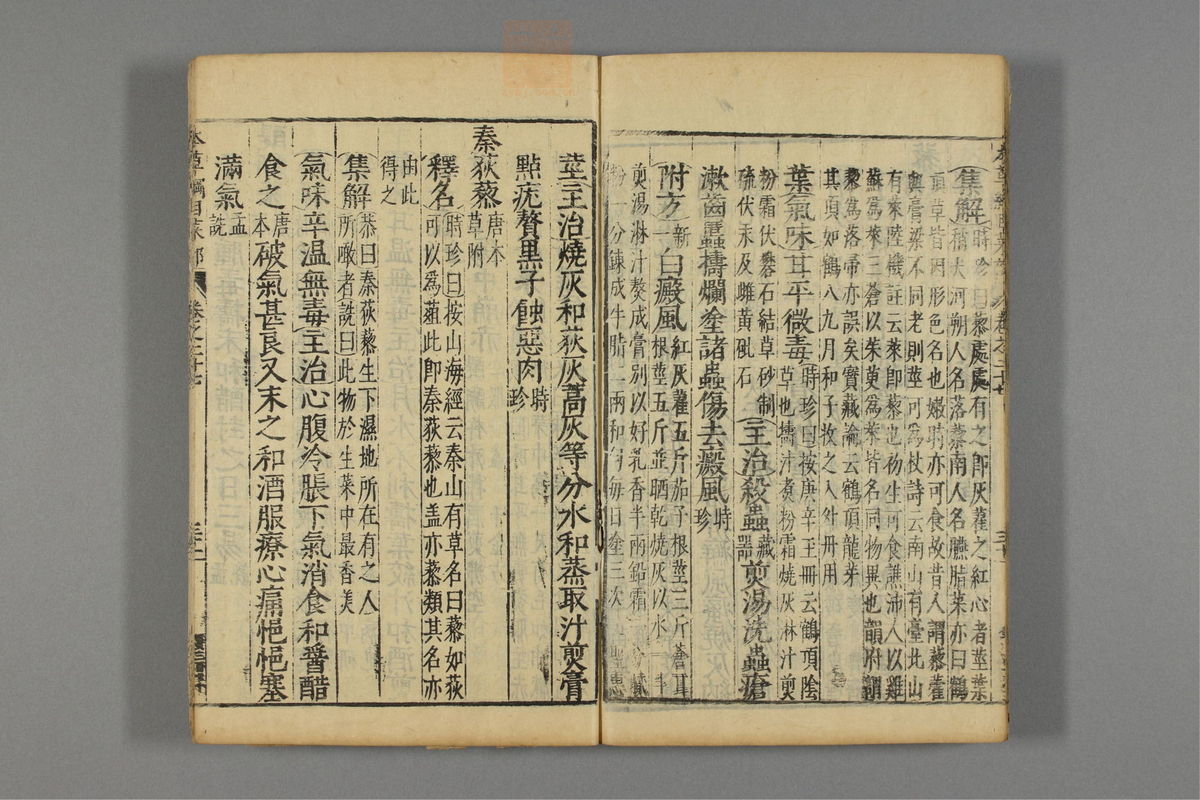 集解時珍曰藜處處有之即灰藋之紅心者莖葉
稍大河朔人名落藜南人名臙脂菜亦曰鶴
頂草皆因形色名也嫩時亦可食故昔人謂藜藿
與膏粱不同老則莖可為杖詩云南山有臺北山
有萊陸機註云萊即藜也初生可食譙沛人以雞
蘇為萊三蒼以茱萸為萊皆名同物異也韻府謂
藜為落帚亦誤矣寶藏論云鶴頂龍芽
其頂如鶴八九月和子收之入外丹用
葉氣味甘平微毒時珍曰按庚辛玉冊云鶴頂陰
草也擣汁煮粉霜燒灰淋汁煎
粉霜伏礬石結草砂制
硫伏汞及雌黃砒石主治殺蟲藏器煎湯洗蟲瘡
漱齒䘌擣爛塗諸蟲傷去癜風時珍
附方新一白癜風紅灰藋五斤茄子根莖三斤蒼耳
根莖五斤並晒乾燒灰以水一斗
煎湯淋汁熬成膏別以好乳香半兩鉛霜
粉一分鍊成牛脂二兩和勻每日塗三次
莖主治燒灰和荻灰蒿灰等分水和蒸取汁煎膏
點疣贅黑子蝕惡肉時珍
秦荻藜唐本草附
釋名時珍曰按山海經云秦山有草名曰藜如荻
可以為菹此即秦荻藜也盖亦藜類其名亦
由此
得之
集解恭曰秦荻藜生下濕地所在有之人
所噉者詵曰此物於生菜中最香美
氣味辛溫無毒主治心腹冷脹下氣消食和醬醋
食之唐本破氣甚良又末之和酒服療心痛悒悒塞
滿氣孟詵
本草綱目菜部 卷之二十七